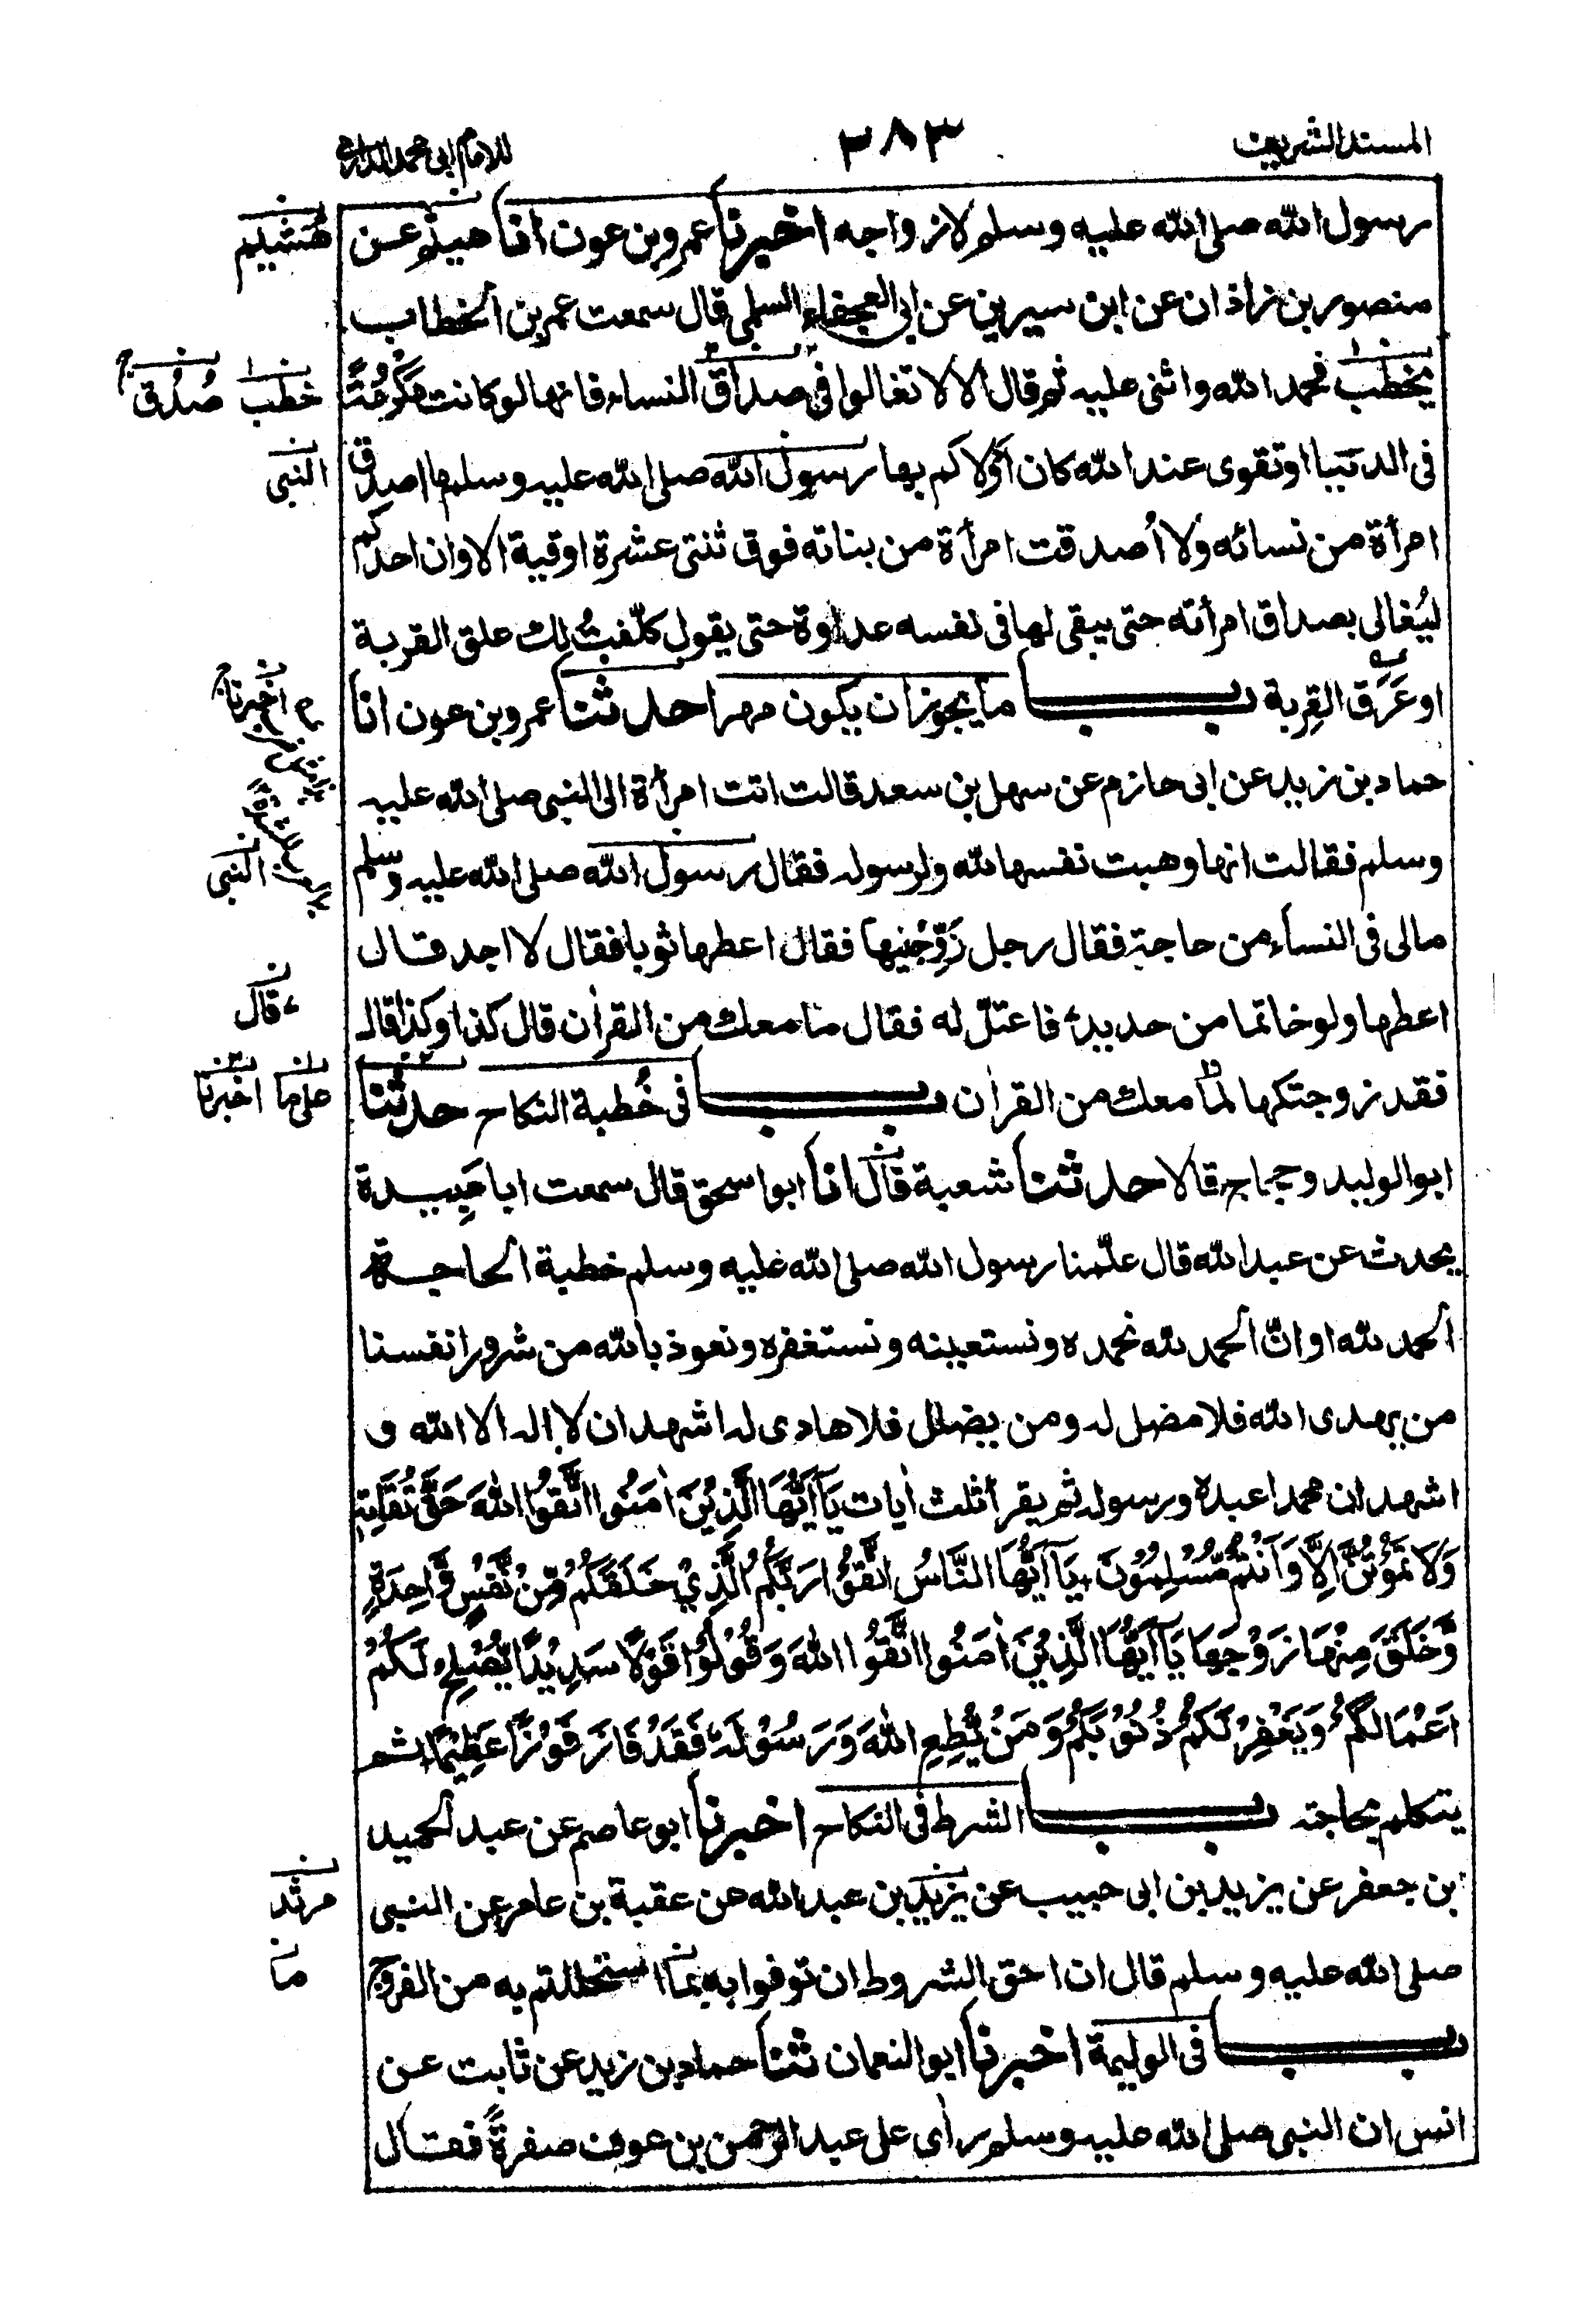 المسند الشريف
٣٨٣
للامام ابي محمد الدارمي
رسول الله صلى الله عليه وسلم لازواجه اخبرنا عمرو بن عون انا هيثم عن
هشيم
منصور بن زاذان عن ابن سيرين عن ابي العجفاء السلمي قال سمعت عمر بن الخطاب
يخطب فحمد الله واثنى عليه ثم قال الا لا تغالوا في صداق النساء فانها لو كانت مكرمة
خطب صُدُق
في الدنيا او تقوى عند الله كان اولاكم بها رسول الله صلى الله عليه وسلم ما اصدق
النبي
امرأة من نسائه ولا أصدقت امرأة من بناته فوق ثنتي عشرة اوقية الا وان احدكم
ليُغالى بصداق امرأته حتى يبقى لها في نفسه عداوة حتى يقول كلّفتُ لك علق القربة
او عَرَق القِربة باب ما يجوز ان يكون مهرا حدثنا عمرو بن عون انا
اخبرنا
حماد بن زيد عن ابي حازم عن سهل بن سعد قالت اتت امرأة الى النبي صلى الله عليه
وسلم فقالت انها وهبت نفسها لله ولرسوله فقال رسول الله صلى الله عليه وسلم
النبي
مالى في النساء من حاجة فقال رجل زَوِّجْنيها فقال اعطها ثوبا فقال لا اجد قال
اعطها ولو خاتما من حديد فاعتلّ له فقال ما معك من القرآن قال كذا وكذا قال
قال
فقد زوجتكها لما معك من القرآن باب في خُطبة النكاح حدثنا
على ما اخبرنا
ابو الوليد وحجاج قالا حدثنا شعبة قال انا ابو اسحق قال سمعت ابا عبيدة
يحدث عن عبد الله قال علّمنا رسول الله صلى الله عليه وسلم خطبة الحاجة
الحمد لله او انّ الحمد لله نحمده ونستعينه ونستغفره ونعوذ بالله من شرور انفسنا
من يهدى الله فلا مضل له ومن يضلل فلا هادى له اشهد ان لا اله الا الله و
اشهد ان محمدا عبده ورسوله ثم يقرأ ثلث اٰيات يَآ اَيُّهَا الَّذِيْنَ اٰمَنُوا اتَّقُوا اللهَ حَقَّ تُقَاتِهٖ
وَلَا تَمُوْتُنَّ اِلَّا وَاَنْتُمْ مُّسْلِمُوْنَ يَآ اَيُّهَا النَّاسُ اتَّقُوْا رَبَّكُمُ الَّذِيْ خَلَقَكُمْ مِّنْ نَّفْسٍ وَّاحِدَةٍ
وَّخَلَقَ مِنْهَا زَوْجَهَا يَآ اَيُّهَا الَّذِيْنَ اٰمَنُوا اتَّقُوا اللهَ وَقُوْلُوْا قَوْلًا سَدِيْدًا يُّصْلِحْ لَكُمْ
اَعْمَالَكُمْ وَيَغْفِرْ لَكُمْ ذُنُوْبَكُمْ وَمَنْ يُّطِعِ اللهَ وَرَسُوْلَهٗ فَقَدْ فَازَ فَوْزًا عَظِيْمًا ثم
يتكلم بحاجته باب الشرط في النكاح اخبرنا ابو عاصم عن عبد الحميد
بن جعفر عن يزيد بن ابي حبيب عن يزيد بن عبد الله عن عقبة بن عامر عن النبي
مرثد
صلى الله عليه وسلم قال ان احق الشروط ان توفوا به بما استحللتم به من الفروج
ما
باب في الوليمة اخبرنا ابو النعمان ثنا حماد بن زيد عن ثابت عن
انس ان النبي صلى الله عليه وسلم رأى على عبد الرحمن بن عوف صفرةً فقال